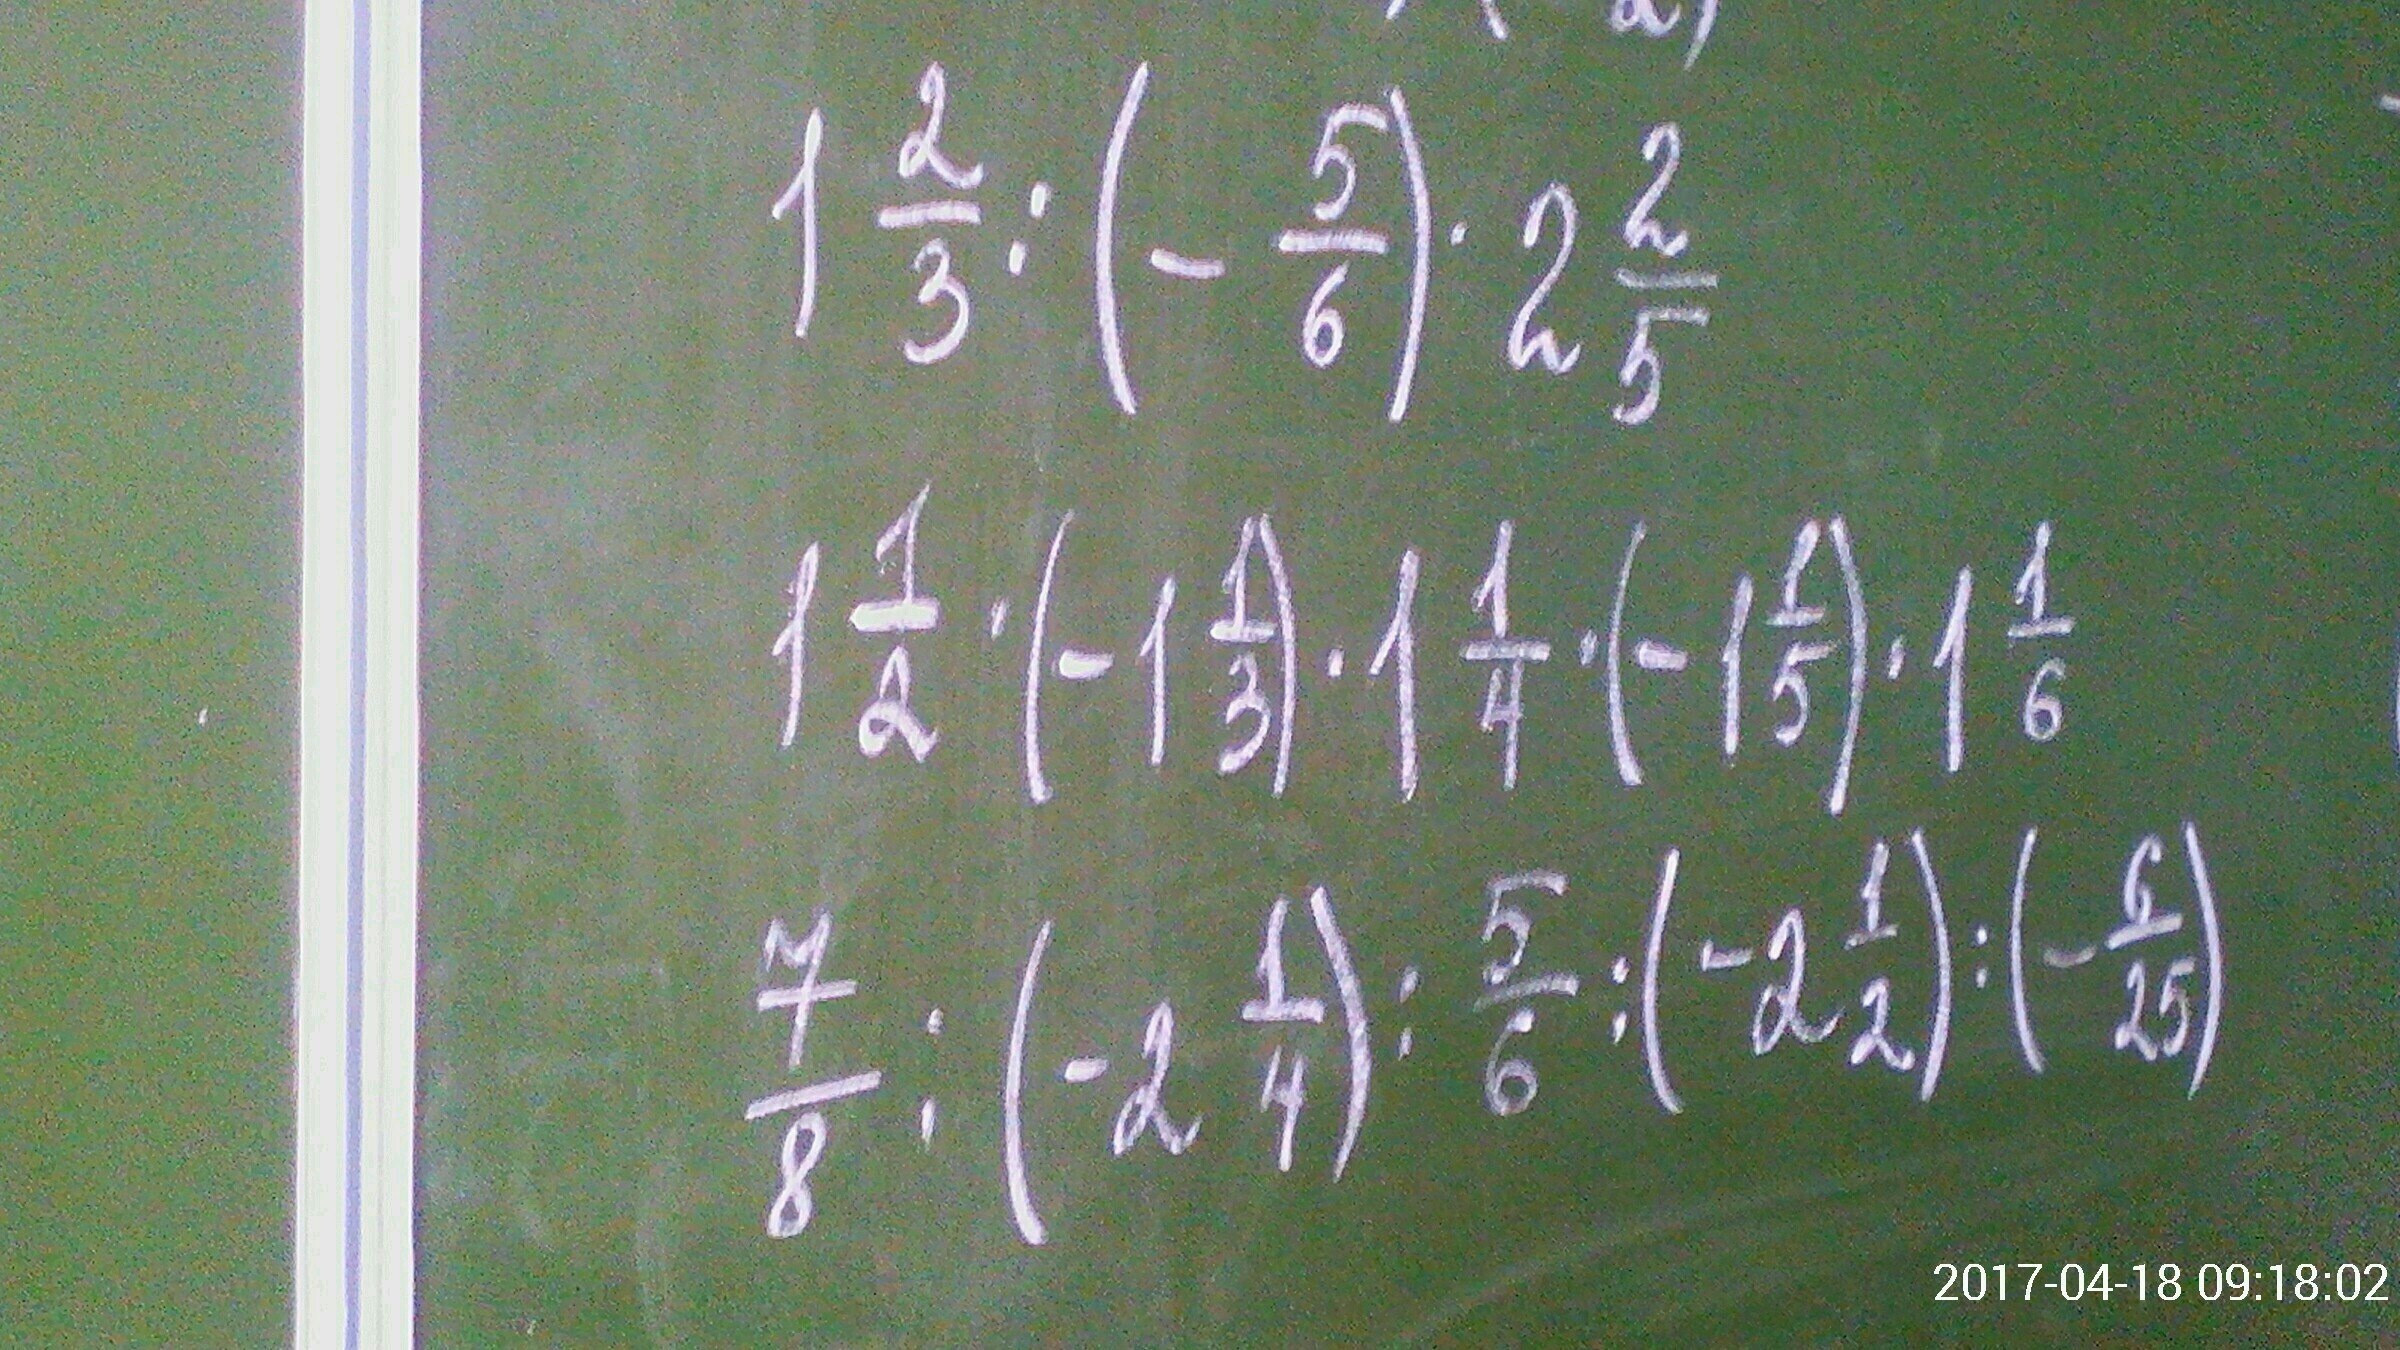 1 2/3 : (- 5/6) · 2 2/5
1 1/2 · (-1 1/3) · 1 1/4 · (-1 1/5) · 1 1/6
7/8 : (-2 1/4) : 5/6 : (-2 1/2) : (- 6/25)
2017-04-18 09:18:02